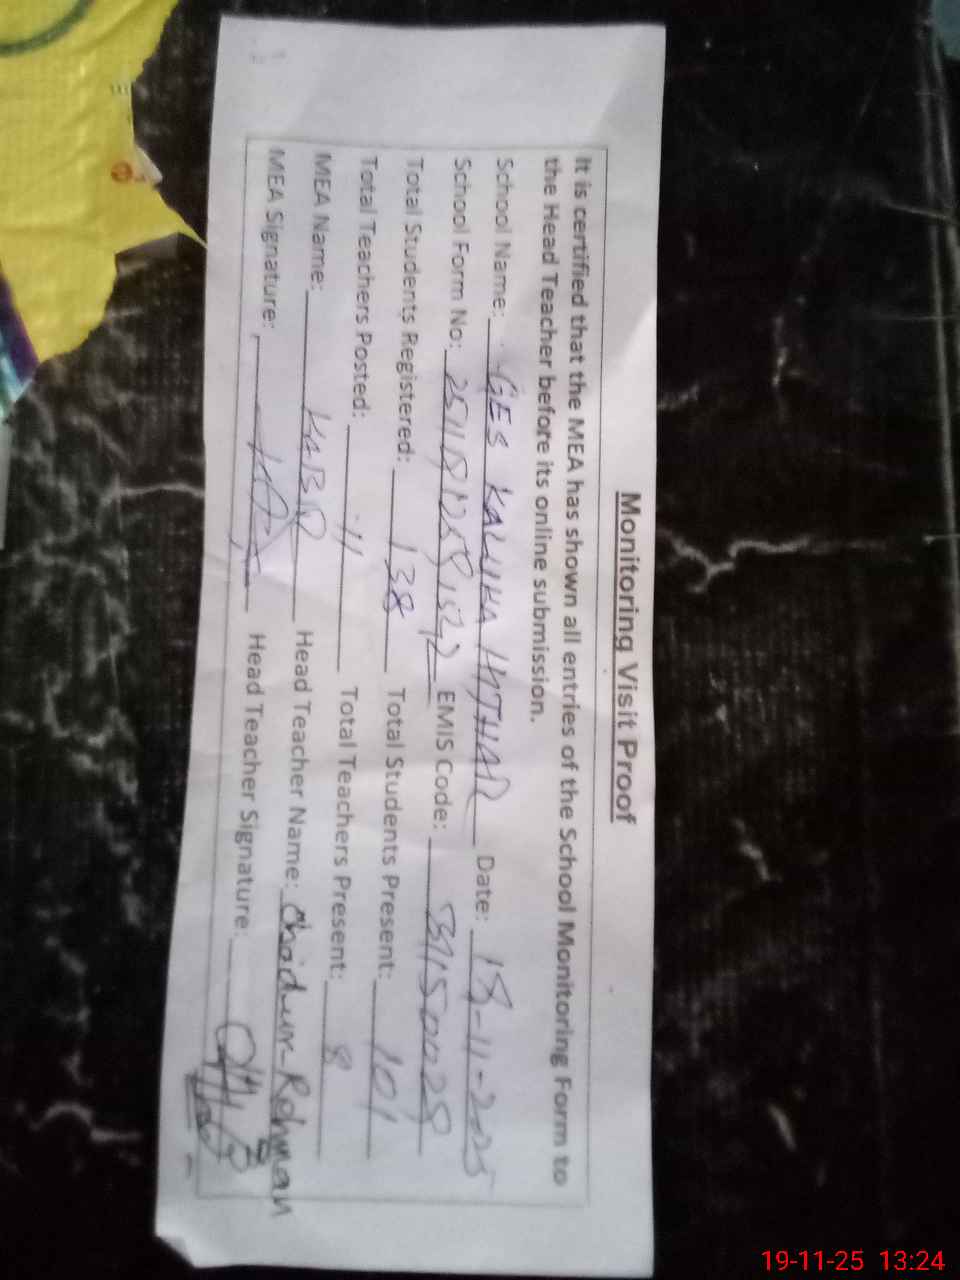 Monitoring Visit Proof
It is certified that the MEA has shown all entries of the School Monitoring Form to
the Head Teacher before its online submission.
School Name: GES KALUHA Date: 18-11-2025
School Form No: EMIS Code:
Total Students Registered: 138 Total Students Present: 101
Total Teachers Posted: 11 Total Teachers Present: 8
MEA Name: KABIR Head Teacher Name: Obaid-ur-Rehman
MEA Signature: Head Teacher Signature:
19-11-25 13:24